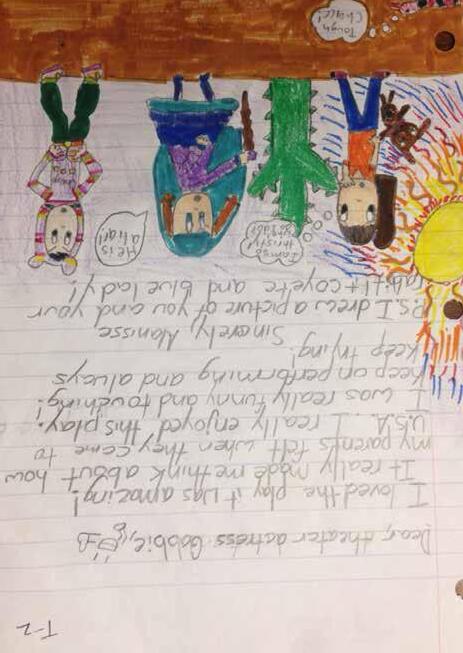 T-2
Dear, theater actress Bobbie,
I loved the play it was amazing!
It really made me think about how
my parents felt when they come to
U.S.A. I really enjoyed this play.
I was really funny and touching!
Keep on performing and always
keep trying!
Sincerely, Marisse
P.S. I drew a picture of you and your
rabbit + coyote and blue lady!
I am so thirsty!
He is a liar!
Tough